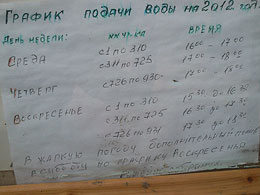 ГРАФИК ПОДАЧИ ВОДЫ НА 2012 ГОД.
ДЕНЬ НЕДЕЛИ: ВРЕМЯ
СРЕДА с 1 по 310 16 00 - 17 00
с 311 по 725 17 00 - 18 00
ЧЕТВЕРГ с 726 по 930
ВОСКРЕСЕНЬЕ с 1 по 310 15 30 до 16 30
с 311 по 725 16 30 до 17 30
с 726 по 17 30 до 18 30
В ЖАРКУЮ ПОГОДУ ДОПОЛНИТЕЛЬНЫЙ
ПО ГРАФИКУ ВОСКРЕСЕНЬЯ